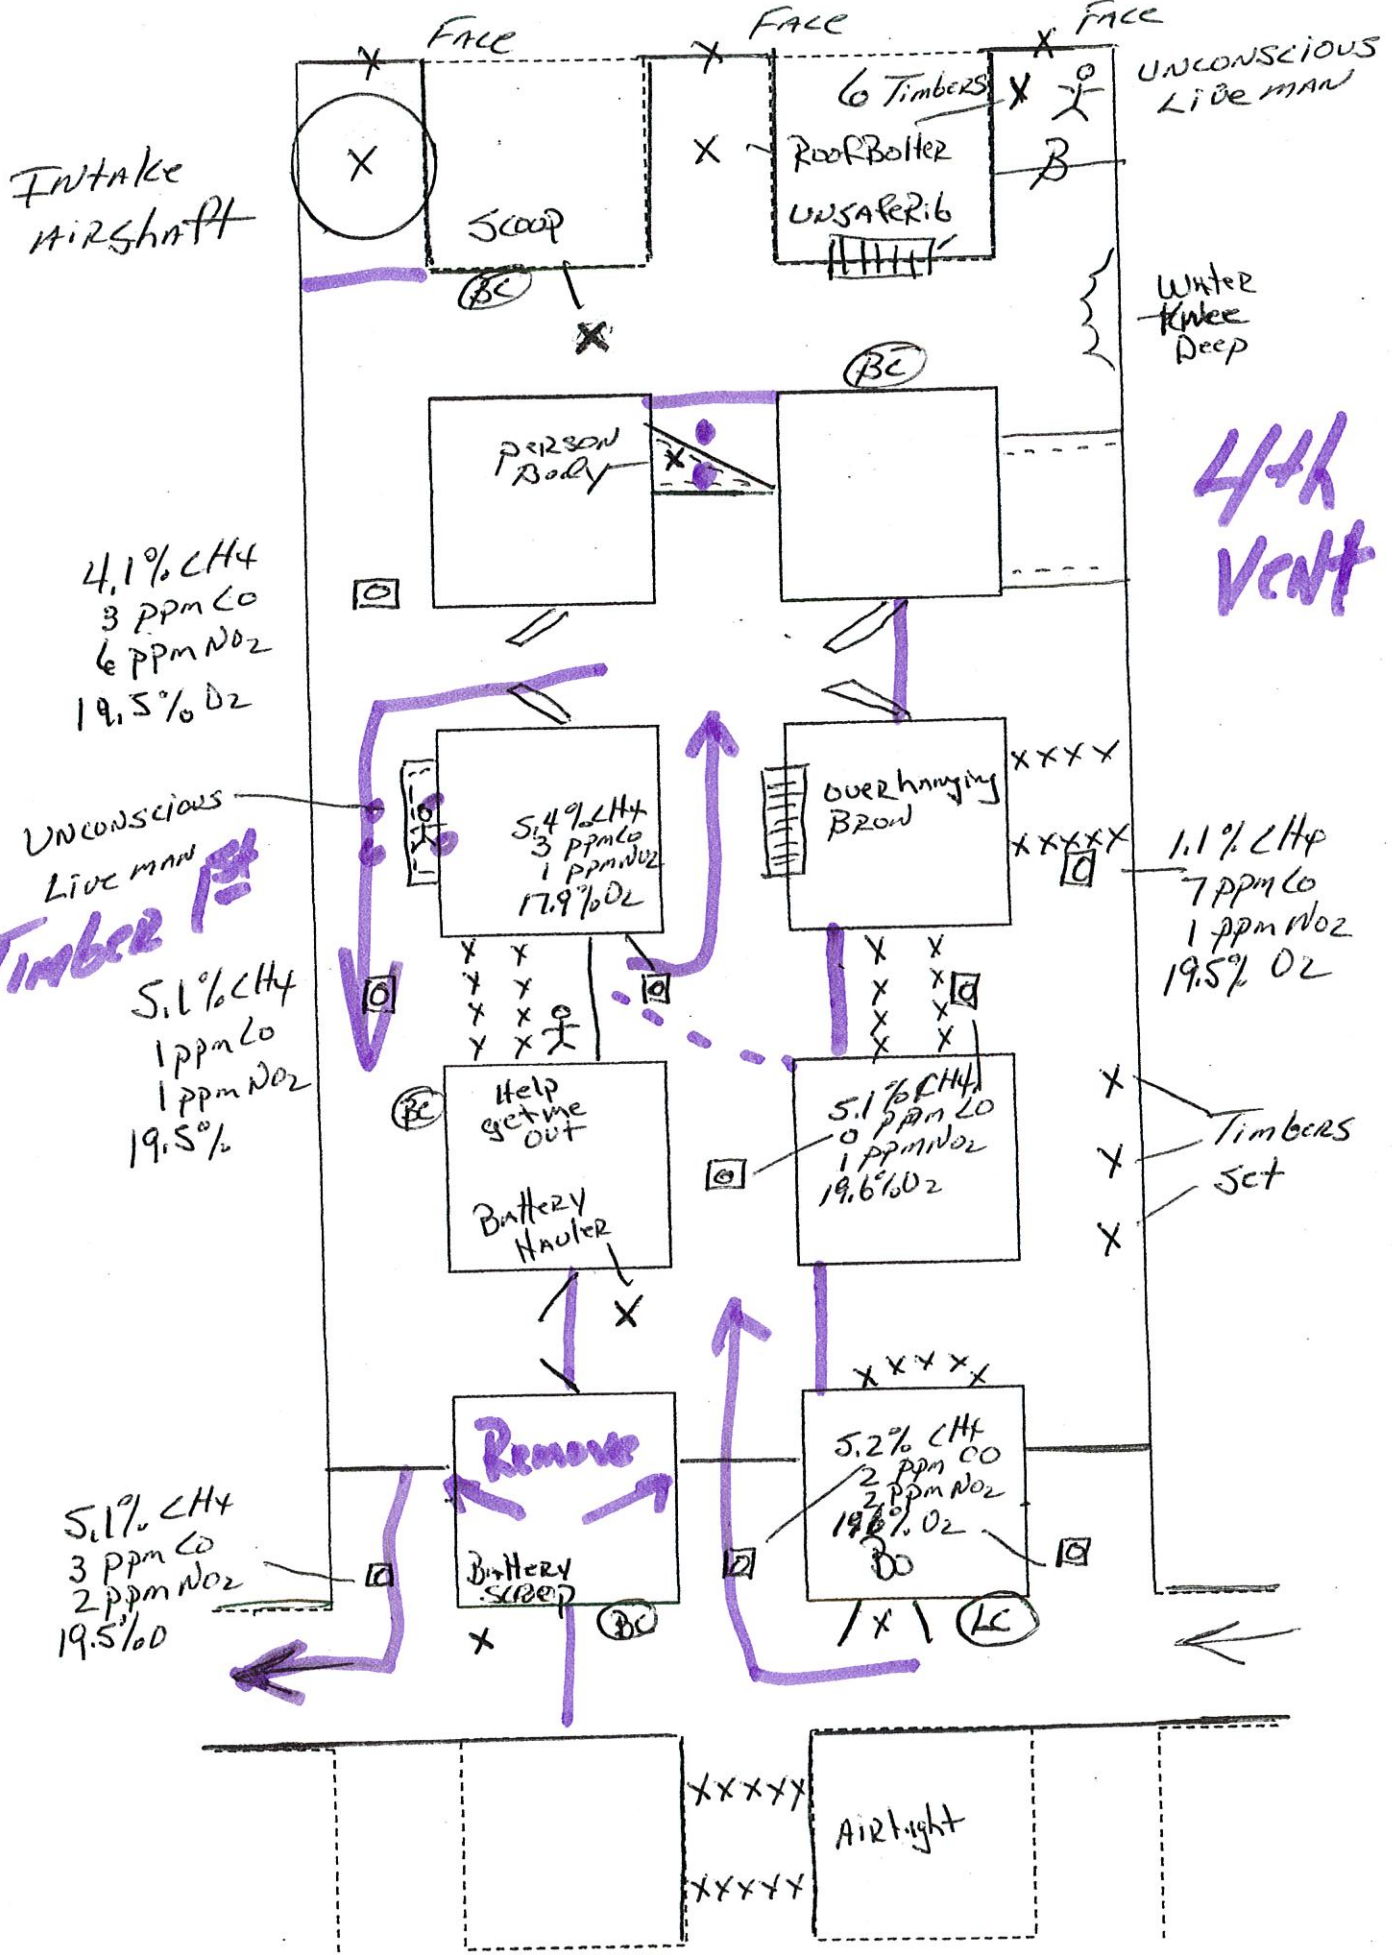 FACE
FACE
FACE
UNCONSCIOUS
Live MAN
6 Timbers
X
X
X
X
X
X
RoofBolter
B
INTAKE
AIRShaft
UNSAFERib
SCOOP
BC
X
WATER
Knee
Deep
BC
PERSON
Body
X
4th
VENT
4.1% CH4
3 ppm CO
6 ppm NO2
19.5% O2
UNCONSCIOUS
Live MAN
Timber 1st
5.4% CH4
3 ppm CO
1 ppm NO2
17.9% O2
overhanging
BROW
XXXX
XXXXX
1.1% CH4
7 ppm CO
1 ppm NO2
19.5% O2
5.1% CH4
1 ppm CO
1 ppm NO2
19.5%
X X
X X
X X
X X
X X
X X
X X
X X
BC
Help
get me
out
Battery
Hauler
X
5.1% CH4
0 ppm CO
1 ppm NO2
19.6% O2
X
X
X
Timbers
Set
XXXXX
Remove
5.2% CH4
2 ppm CO
2 ppm NO2
19.6% O2
BO
5.1% CH4
3 ppm CO
2 ppm NO2
19.5% O
Battery
scoop
X
BC
X
LC
XXXXX
AIRtight
XXXXX